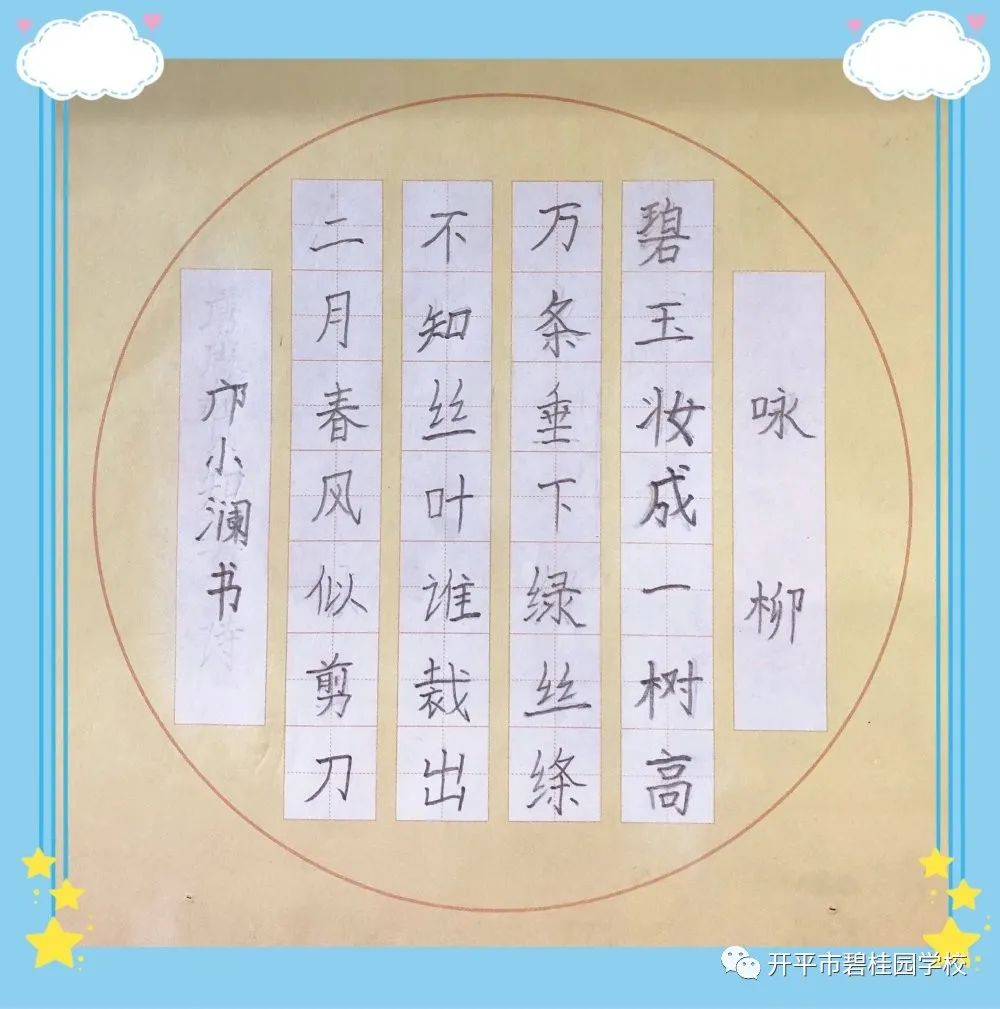 咏柳
碧玉妆成一树高
万条垂下绿丝绦
不知丝叶谁裁出
二月春风似剪刀
邝小澜书
开平市碧桂园学校